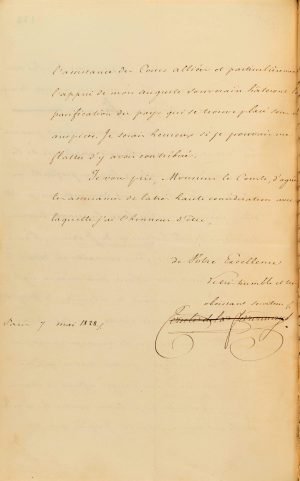 l'assistance des Cours alliées et particulièrement
l'appui de mon auguste souverain hâteront la
pacification du pays qui se trouve placé sous
auspices. Je serais heureux si je pouvais me
flatter d'y avoir contribué.
Je vous prie, Monsieur le Comte, d'agréer
l'assurance de la très haute considération avec
laquelle j'ai l'honneur d'être,
de Votre Excellence
très humble et
obéissant serviteur
7 mai 1828